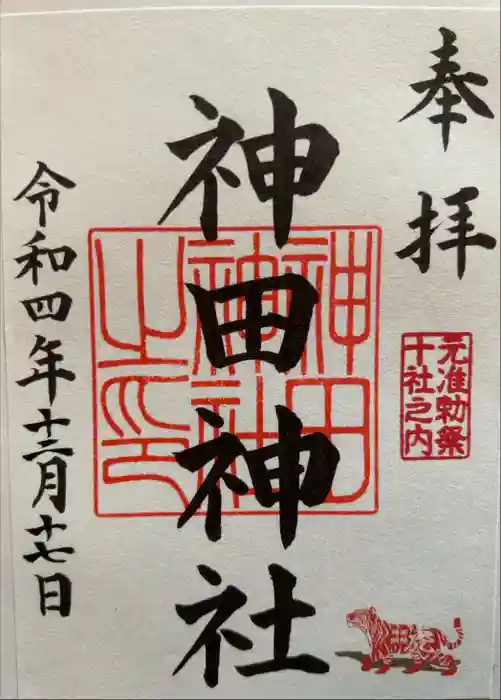 奉拝
元准勅祭
十社之内
神田神社
神田
神社
之印
令和四年十二月十七日